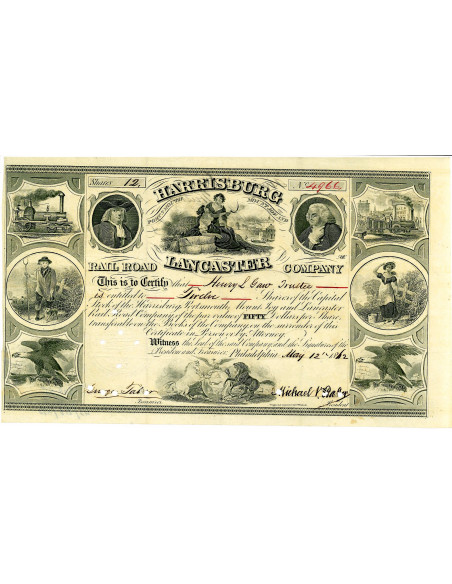 Shares 12
No 4966
HARRISBURG
PORTSMOUTH MOUNT JOY AND
LANCASTER
RAIL ROAD COMPANY
This is to Certify that Henry L Gaw Trustee
is entitled to Twelve Shares of the Capital
Stock of the Harrisburg Portsmouth Mount Joy and Lancaster
Rail Road Company of the par value of FIFTY Dollars per Share
transferable on the Books of the Company on the surrender of this
Certificate in Person or by Attorney.
Witness the Seal of the said Company and the Signatures of the
President and Treasurer Philadelphia May 12th 1862
Treasurer
President